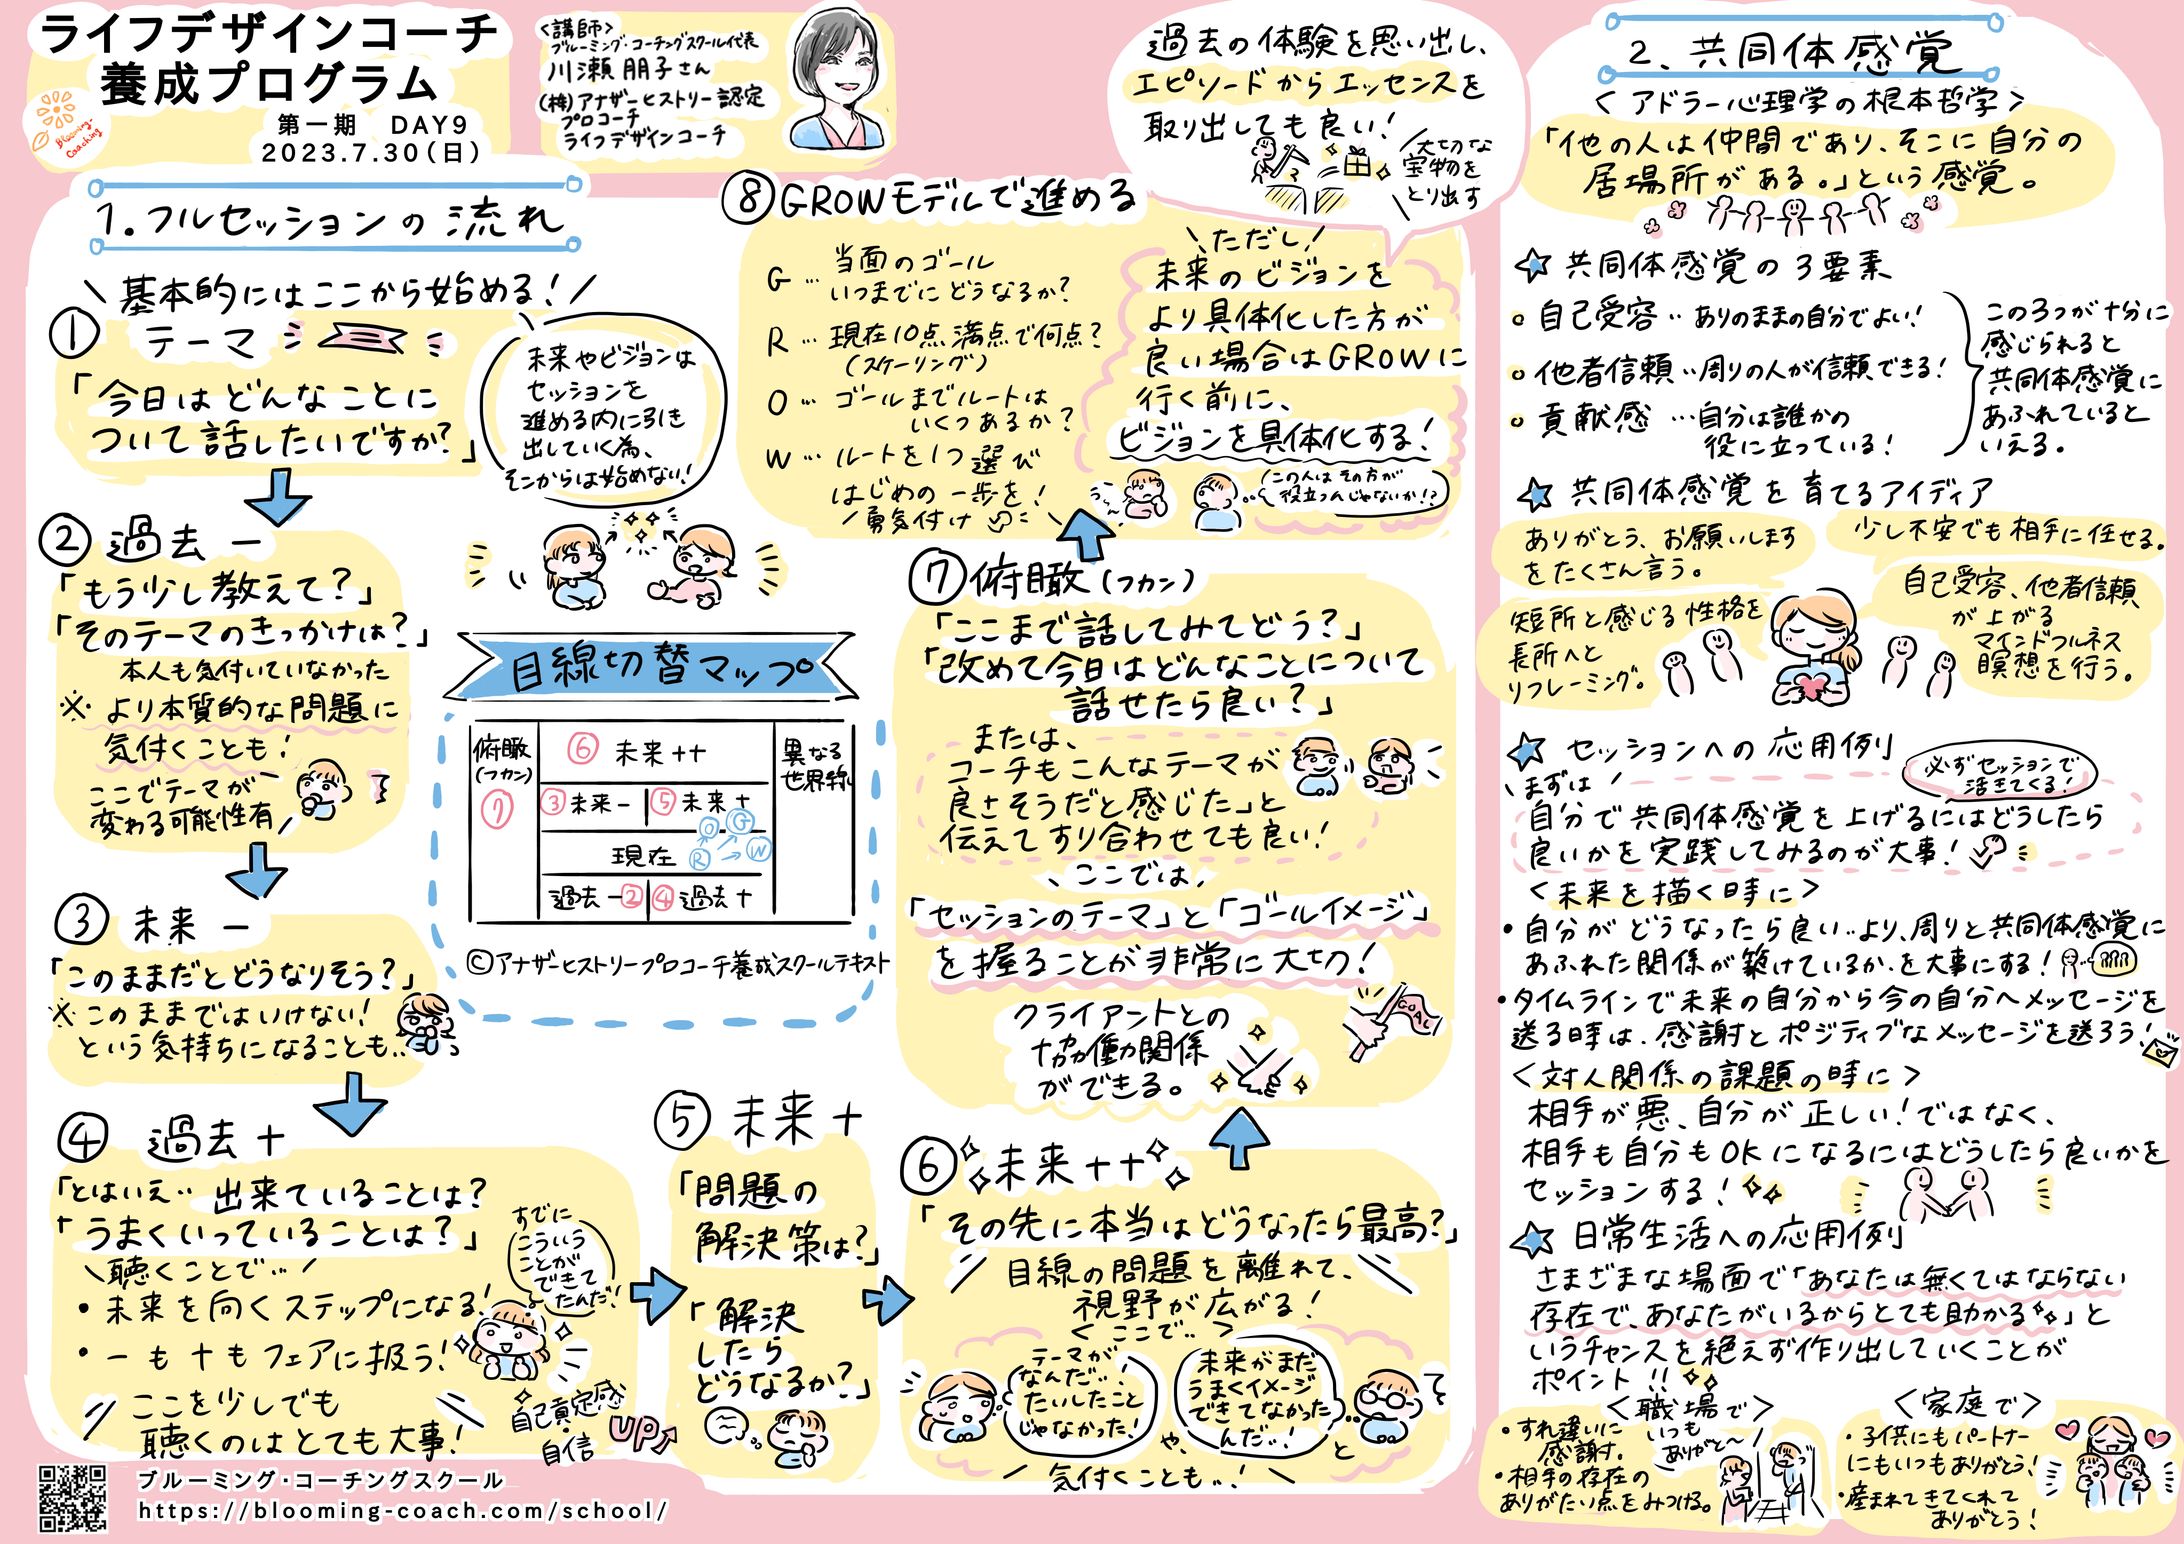 ライフデザインコーチ
養成プログラム
第一期 DAY9
2023.7.30(日)
Blooming-
Coaching
<講師>
ブルーミング・コーチングスクール代表
川瀬 朋子さん
(株)アナザーヒストリー認定
プロコーチ
ライフデザインコーチ
1.フルセッションの流れ
\基本的にはここから始める!/
① テーマ
「今日はどんなことに
ついて話したいですか?」
未来やビジョンは
セッションを
進める内に引き
出していく為、
そこからは始めない!
② 過去 ー
「もう少し教えて?」
「そのテーマのきっかけは?」
本人も気付いていなかった
※より本質的な問題に
気付くことも!
ここでテーマが
変わる可能性有/
③ 未来 ー
「このままだとどうなりそう?」
※このままではいけない!
という気持ちになることも..
④ 過去 +
「とはいえ.. 出来ていることは?
「うまくいっていることは?」
\聴くことで../
・未来を向くステップになる!
・ーも+もフェアに扱う!
ここを少しでも
聴くのはとても大事!
すでに
こういう
ことが
できて
たんだ!
自己肯定感
・自信
UP↑
⑤ 未来 +
「問題の
解決策は?」
「解決
したら
どうなるか?」
⑥ 未来++
「その先に本当はどうなったら最高?」
目線の問題を離れて、
視野が広がる!
<ここで..>
テーマが
なんだ..!
たいしたこと
じゃなかった!
や、
未来がまだ
うまくイメージ
できてなかった
んだ..!
と
/気付くことも..!\
⑦俯瞰(フカン)
「ここまで話してみてどう?」
「改めて今日はどんなことについて
話せたら良い?」
または、
コーチもこんなテーマが
良さそうだと感じた」と
伝えてすり合わせても良い!
\ここでは、
「セッションのテーマ」と「ゴールイメージ」
を握ることが非常に大切!
クライアントとの
協働関係
ができる。
GOAL
⑧GROWモデルで進める
G … 当面のゴール
いつまでにどうなるか?
R … 現在10点満点で何点?
(スケーリング)
O … ゴールまでルートは
いくつあるか?
W … ルートを1つ選び
はじめの一歩を!
/勇気付け
過去の体験を思い出し、
エピソードからエッセンスを
取り出しても良い!
大切な
宝物を
とり出す
\ただし/
未来のビジョンを
より具体化した方が
良い場合はGROWに
行く前に、
ビジョンを具体化する!
この人はその方が
役立つんじゃないか!?
目線切替マップ
俯瞰
(フカン)
⑦
⑥ 未来++
異なる
世界線
③未来ー ⑤未来+
現在
O G
R → W
過去ー② ④過去+
©アナザーヒストリープロコーチ養成スクールテキスト
2.共同体感覚
<アドラー心理学の根本哲学>
「他の人は仲間であり、そこに自分の
居場所がある。」という感覚。
☆共同体感覚の3要素
○自己受容..ありのままの自分でよい!
○他者信頼..周りの人が信頼できる!
○貢献感 …自分は誰かの
役に立っている!
この3つが十分に
感じられると
共同体感覚に
あふれていると
いえる。
☆共同体感覚を育てるアイディア
ありがとう、お願いします
をたくさん言う。
少し不安でも相手に任せる。
短所と感じる性格を
長所へと
リフレーミング。
自己受容、他者信頼
が上がる
マインドフルネス
瞑想を行う。
☆セッションへの応用例
必ずセッションで
活きてくる!
\まずは/
自分で共同体感覚を上げるにはどうしたら
良いかを実践してみるのが大事!
<未来を描く時に>
・自分がどうなったら良い..より、周りと共同体感覚に
あふれた関係が築けているか.を大事にする!
・タイムラインで未来の自分から今の自分へメッセージを
送る時は、感謝とポジティブなメッセージを送ろう!
<対人関係の課題の時に>
相手が悪、自分が正しい!ではなく、
相手も自分もOKになるにはどうしたら良いかを
セッションする!
☆日常生活への応用例
さまざまな場面で「あなたは無くてはならない
存在で、あなたがいるからとても助かる」と
いうチャンスを絶えず作り出していくことが
ポイント!!
<職場で>
・すれ違いに
感謝す。
・相手の存在の
ありがたい点をみつける。
いつも
ありがと〜/
<家庭で>
・子供にもパートナー
にもいつもありがとう!
・産まれてきてくれて
ありがとう!
ブルーミング・コーチングスクール
https://blooming-coach.com/school/